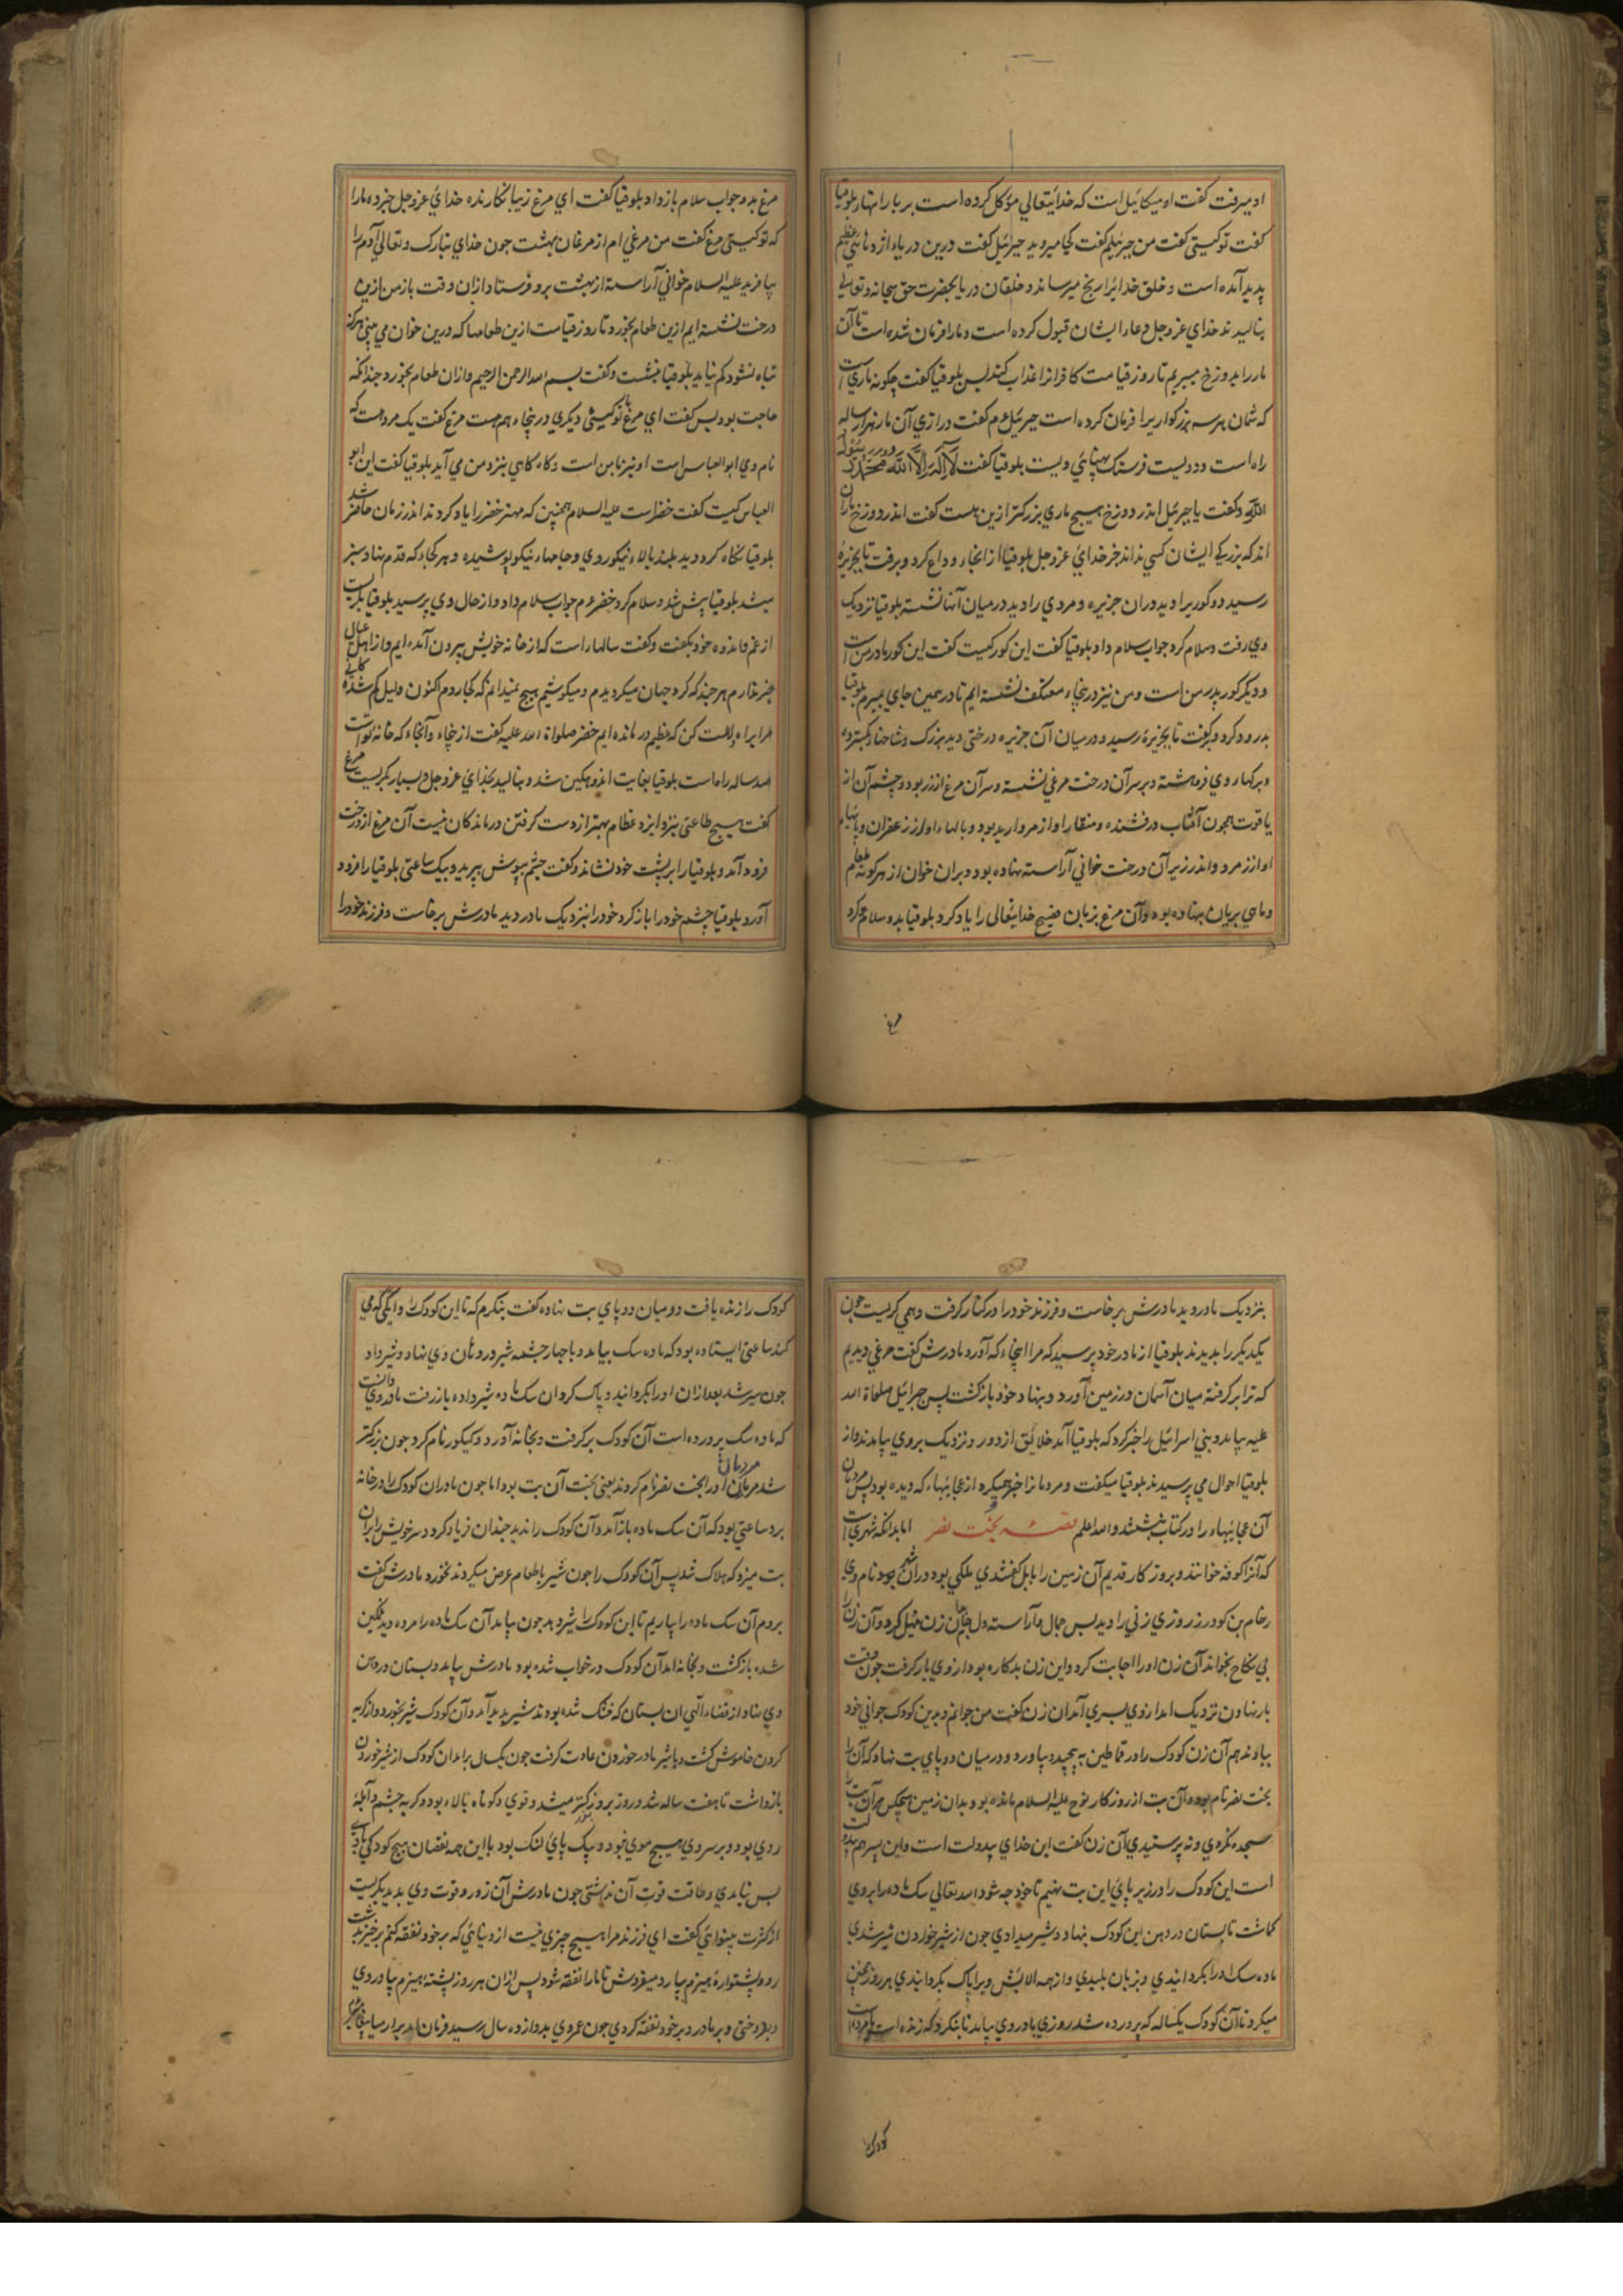 او میرفت گفت او میکائیل است که خدایتعالی موکل کرده است بر بارانها بلوقیا
گفت تو کیستی گفت من جبرئیلم گفت کجا میروید جبرئیل گفت درین دریا اژدهائی عظیم
پدید آمده است و خلق خدایرا رنج میرساند و خلقان دریا بحضرت حق سبحانه و تعالی
بنالیدند خدای عز و جل دعاء ایشان قبول کرده است و مارا فرمان شده است تا آن
مار را بدوزخ میبریم تا روز قیامت کافرانرا عذاب کند پس بلوقیا گفت چگونه ماری است
که شمان هر سه بزرگواریرا فرمان کرده است جبرئیل ع م گفت درازی آن مار هزار ساله
راه است و دویست فرسنگ پهنای ویست بلوقیا گفت لا اله الا الله محمد رسول
الله و گفت یا جبرئیل اندر دوزخ هیچ ماری بزرگتر ازین هست گفت اندر دوزخ ماران
اند که بزرگی ایشان کسی نداند جز خدای عز و جل بلوقیا از انجاء وداع کرد و برفت تا بجزیرهٔ
رسید دو گور یرا دید دران جزیره و مردی را دید در میان آنها نشسته بلوقیا نزدیک
وی رفت و سلام کرد جواب سلام داد بلوقیا گفت این گور کیست گفت این گور مادر من است
و دیگر گور پدر من است و من نیز درینجاء معتکف نشسته ایم تا در همین جای بمیرم بلوقیا
بدرود کرد و برفت تا بجزیرهٔ رسید و در میان آن جزیره درختی دید بزرگ و شاخها گسترده
و برگهاء وی فروهشته و بر سر آن درخت مرغی نشسته و سر آن مرغ از زر بود و چشم آن از
یاقوت همچون آفتاب درفشنده و منقار او از مروارید بود و بالهاء او از زعفران و پایهاء
او از زمرد و اندر زیر آن درخت خوانی آراسته نهاده بود و بران خوان از هر گونه طعام
و ماهی بریان نهاده بود و آن مرغ بزبان فصیح خدایتعالی را یاد کرد بلوقیا بدو سلام کرد
مرغ
مرغ بدو جواب سلام باز داد بلوقیا گفت ای مرغ زیبا نگارنده خدای عز و جل خبر ده مارا
که تو کیستی مرغ گفت من مرغی ام از مرغان بهشت چون خدای تبارک و تعالی آدم را
بیافرید علیه السلام خوانی آراسته از بهشت برو فرستاد ازان وقت باز من ازین
درخت نشسته ایم ازین طعام بخورد تا روز قیامت ازین طعامها که درین خوان می بینی هرگز
تباه نشود کم نیاید بلوقیا بنشست و گفت بسم الله الرحمن الرحیم و ازان طعام بخورد چندانکه
حاجت بود پس گفت ای مرغ با تو کیستی دیگری درینجاء هم هست مرغ گفت یک مرد هست که
نام وی ابو العباس است او نیز با من است و گاه گاهی بنزد من می آید بلوقیا گفت این ابو
العباس کیست گفت خضر است علیه السلام همچنین که مهتر خضر را یاد کردند اندر زمان حاضر شد
بلوقیا نگاه کرد دید بلند بالاء نیکو روی و جامهاء نیکو پوشیده و هر کجا که قدم نهاد سبز
میشد بلوقیا پیش شد و سلام کرد خضر ع م جواب سلام داد و از حال وی پرسید بلوقیا بگریست
از غم و اندوه خود بگفت و گفت سالهاء است که از خانه خویش بیرون آمده ایم و از اهل عیال
خبر ندارم هر چند که گرد جهان میگردیدم و میکوشیم هیچ نمیدانم که کجا روم اکنون دلیل گم شدگانی
مرا براه دلالت کن که عظیم درمانده ایم خضر صلواة الله علیه گفت از ینجاء و آنجاء که خانه تو است
صد ساله راه است بلوقیا بغایت اندوهگین شد و بنالید بخدای عز و جل و بسیار بگریست مرغ
گفت هیچ طاعتی بنزد ایزد عظام بهتر از دست گرفتن درماندگان نیست آن مرغ از درخت
فرود آمد و بلوقیا را بر پشت خود نشاند و گفت چشم بپوش بپرید و بیک ساعتی بلوقیا را فرود
آورد بلوقیا چشم خود را باز کرد خود را بنزدیک مادر دید مادرش برخاست و فرزند خود را
بنزدیک مادر دید مادرش برخاست و فرزند خود را در کنار گرفت و همی گریست چون
یکدیگر را بدیدند بلوقیا از مادر خود پرسید که مرا اینجاء که آورد مادرش گفت مرغی دیدیم
که ترا بر گرفته میان آسمان و زمین آورد و بنهاد و خود باز گشت پس جبرائیل صلواة الله
علیه بیامد و بنی اسرائیل را خبر کرد که بلوقیا آمد خلائق از دور و نزدیک بروی بیامدند و از
بلوقیا احوال می پرسیدند بلوقیا میگفت و مردمانرا خبر میکرد از عجائبهاء که دیده بود پس مردمان
آن عجائبهاء را در کتاب بنشتند و الله اعلم قصه بخت نصر اما بدانکه شهری است
که آنرا کوفه خوانند و بروزکار قدیم آن زمین را بابل گفتندی ملکی بود دران شهر نام وی
رخام بن کودرز روزی زنی را دید بس جمال و آراسته دل بران زن میل کرد و آن زن را
بی نکاح بخواند آن زن او را اجابت کرد و این زن بدکاره بود از وی بار گرفت چون وقت
بار نهادن نزدیک آمد از وی پسری آمد ان زن گفت من جوانم و بدین کودک جوانی خود
بباد ندهم آن زن کودک را در قماطین به پیچیده بیاورد و در میان دو پای بت نهاد که آن را
بخت نصر نام بود و آن بت از روزکار نوح علیه السلام مانده بود بدان زمین هیچکس مر آن بت را
سجده نکردی و نه پرستیدی آن زن گفت این خدای بیدولت است و این پسر هم بیدولت
است این کودک را در زیر پای این بت نهیم تا خود چه شود الله تعالی سک ماده را بروی
گماشت تا پستان در دهن این کودک بنهاد و شیر میدادی چون از شیر خوردن سیر شدی
ماده سک او را بگردانیدی و بزبان بلیدی و از همه الایش ویرا پاک بگردانیدی هر روز همچنین
میکرد تا آن کودک یکساله که پرورده شد روزی مادر وی بیامد تا بنگرد که زنده است یا مرده
کودک را
کودک را زنده یافت در میان دو پای بت نهاده گفت بنگرم که تا این کودک را دایگی که می
کند ساعتی ایستاده بود که ماده سک بیامد و با چهار چشمه شیر در دهان وی نهاد و شیر داد
چون سیر شد بعد ازان او را بگردانید و پاک کرد ان سک ماده شیر داده باز رفت مادر وی دانست
که ماده سک پرورده است آن کودک برگرفت و بخانه آورد و کیکور نام کرد چون بزرگتر
شد مردمان او را بخت نصر نام کردند یعنی بخت آن بت بود اما چون مادر ان کودک را در خانه
برد ساعتی بود که آن سک ماده باز آمد و آن کودک را ندید چندان فریاد کرد و سر خویش را بران
بت میزد که هلاک شد پس آن کودک را چون شیر با طعام عرض میکردند نخورد مادرش گفت
بروم آن سک ماده را بیاریم تا این کودک را شیر دهد چون بیامد آن سک ماده را مرده دید غمگین
شده باز گشت و بخانه آمد آن کودک در خواب شده بود مادرش بیامد و پستان در دهن
وی نهاد از قضاء الهی ان پستان که خشک شده بودند شیر پدید آمد و آن کودک شیر بخورد و از گریه
کردن خاموش گشت و با شیر مادر خوردن عادت گرفت چون یکسال برامد ان کودک از شیر خوردن
باز داشت تا هفت ساله شد و روز بروز بزرگتر میشد و قوی و کوتاه بالاء بود و گربه چشم و آبله
روی بود و بر سر وی هیچ موی نبود و بیک پای لنگ بود با این همه نقصان هیچ کودکی با وی
بس نیامدی و طاقت قوت آن نداشتی چون مادرش آن زور و قوت وی بدید بگریست
از کثرت بینوائی گفت ای فرزند مرا هیچ چیزی نیست از دنیائی که بر خود نفقه کنم برخیز بدشت
رو و پشتوارهٔ هیزم بیار و میفروش تا مارا نفقه شود پس ازان هر روز پشته هیزم بیاوردی
و بفروختی و بر مادر و بر خود نفقه کردی چون عمر وی بدوازده سال رسید فرمان امد